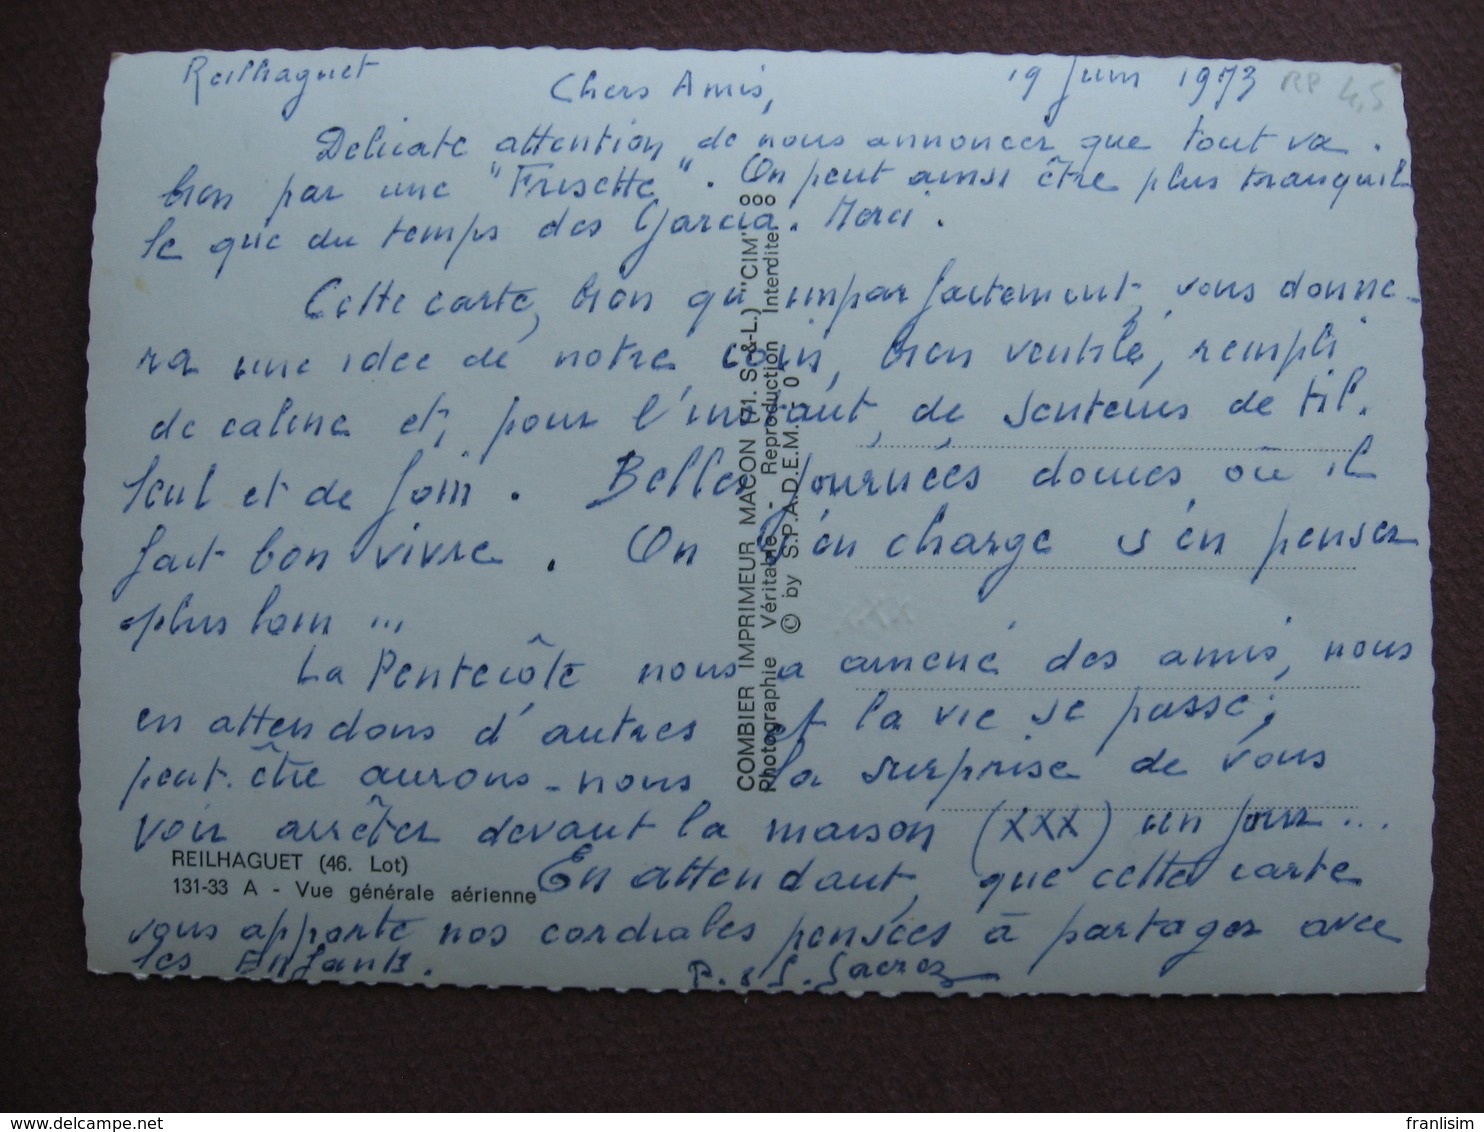 Reilhaguet
19 Juin 1973
RP 4,5
Chers Amis,
Delicate attention de nous annoncer que tout va
bien par une "Frisette". On peut ainsi être plus tranquil
le que du temps des Garcia. Merci.
Cette carte, bien qu'imparfaitement, vous donne-
ra une idée de notre coin, bien ventilé, rempli
de calme et, pour l'instant, de senteurs de til.
leul et de foin. Belles journées douces où il
fait bon vivre. On s'en charge s'en penser
plus loin ...
La Pentecôte nous a amené des amis, nous
en attendons d'autres et la vie se passe;
peut-être aurons-nous la surprise de vous
voir arrêter devant la maison (XXX) un jour...
En attendant, que cette carte
vous apporte nos cordiales pensées à partager avec
les Enfants.
P. & L.
REILHAGUET (46. Lot)
131-33 A - Vue générale aérienne
COMBIER IMPRIMEUR MACON (71. S.-&-L.) "CIM"
Photographie Véritable - Reproduction Interdite
© by S.P.A.D.E.M.
franlisim